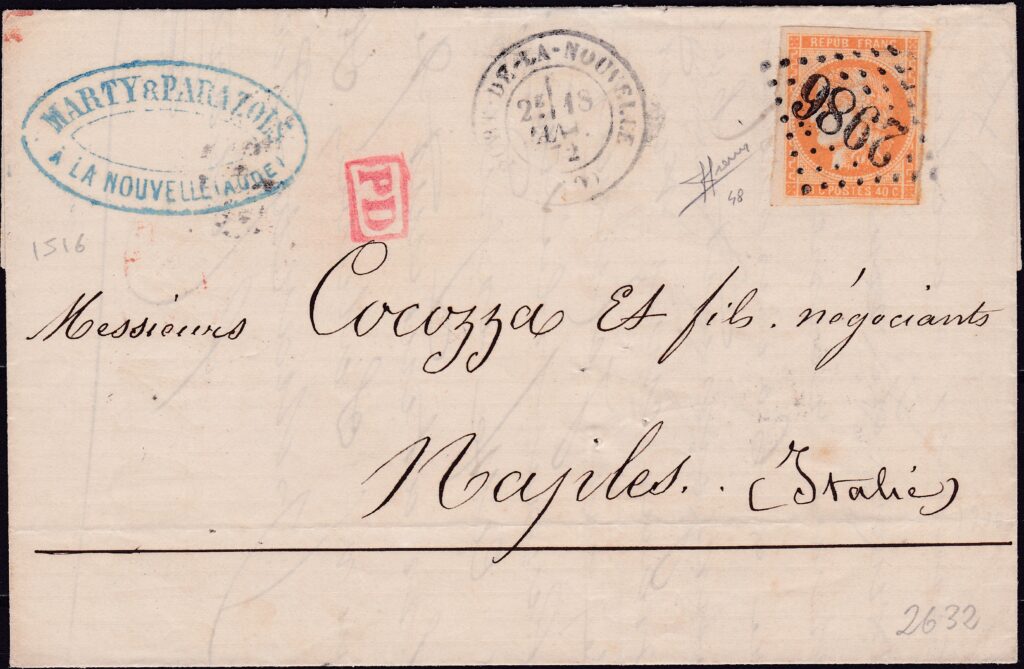 MARTY & PARAZOLS
À LA NOUVELLE (AUDE)
1516
PD
PORT-DE-LA-NOUVELLE
2E 18
REPUB FRANC
2986
POSTES 40 C
48
Messieurs Cocozza Et fils. négociants
Naples.. (Italie)
2632